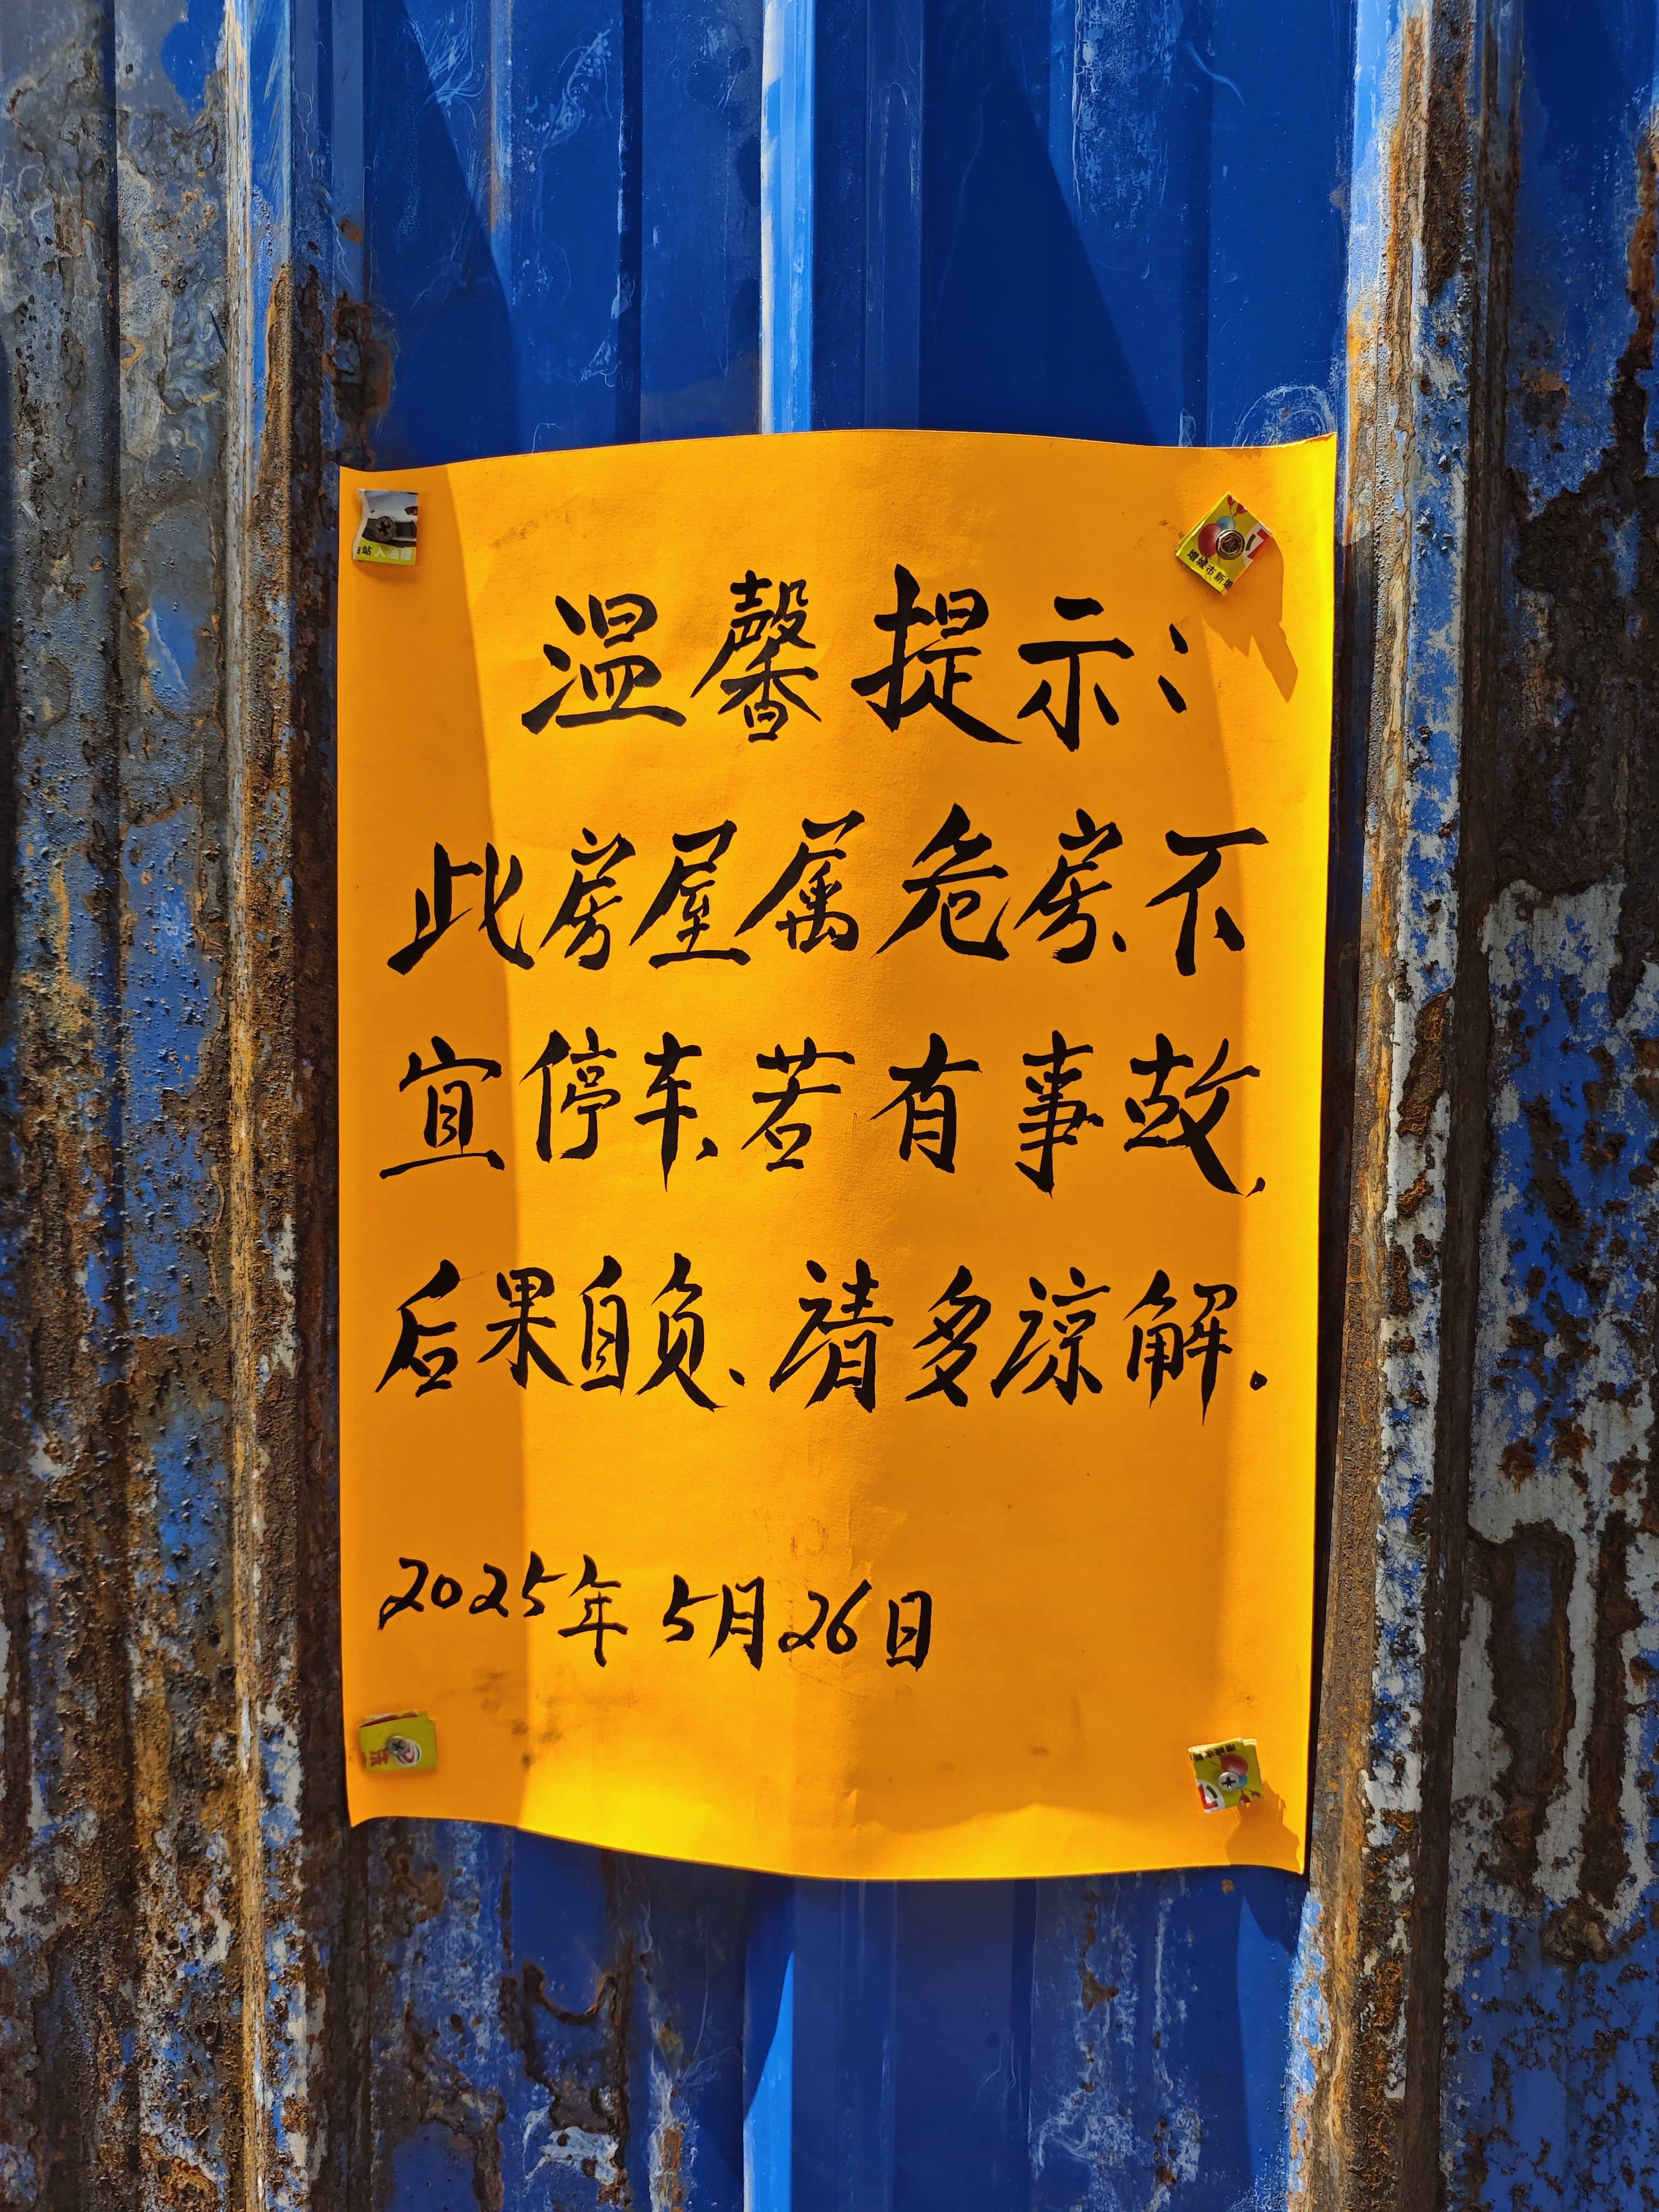 温馨提示:
此房屋属危房、不
宜停车、若有事故,
后果自负、请多谅解.
2025年5月26日
增城市新塘